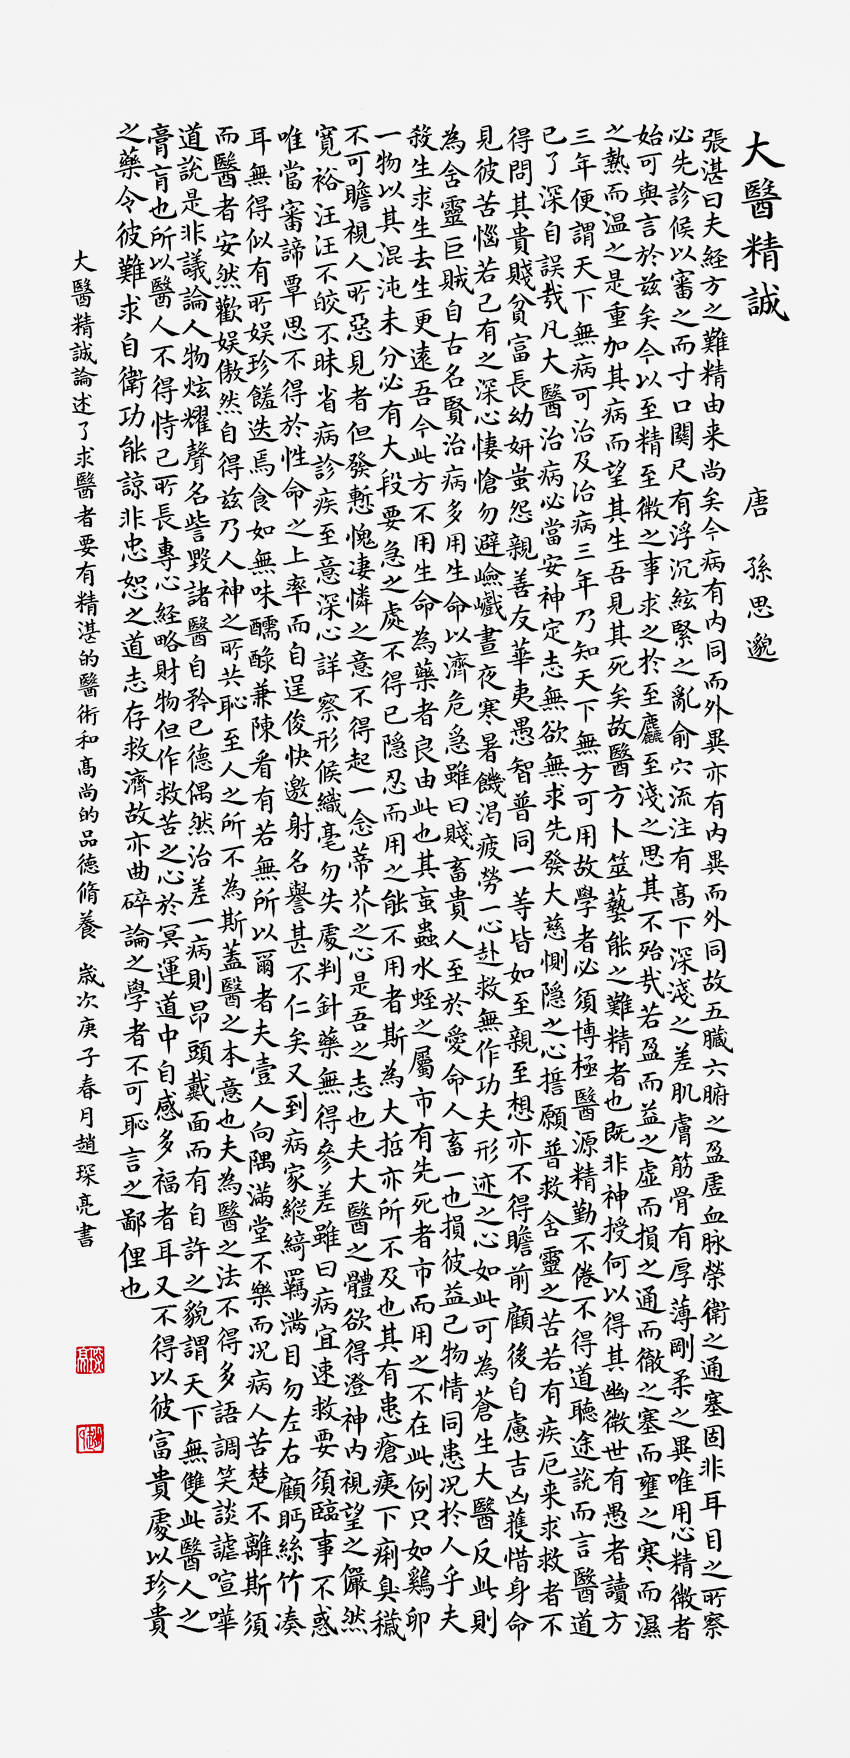 大醫精誠 唐 孫思邈
張湛曰夫経方之難精由来尚矣今病有内同而外異亦有内異而外同故五臓六腑之盈虚血脉榮衛之通塞固非耳目之所察
必先診候以審之而寸口関尺有浮沉絃緊之亂俞穴流注有高下深淺之差肌膚筋骨有厚薄剛柔之異唯用心精微者
始可與言於兹矣今以至精至微之事求之於至麤至淺之思其不殆哉若盈而益之虚而損之通而徹之塞而壅之寒而濕
之熱而温之是重加其病而望其生吾見其死矣故醫方卜筮藝能之難精者也既非神授何以得其幽微世有愚者讀方
三年便謂天下無病可治及治病三年乃知天下無方可用故學者必須博極醫源精勤不倦不得道聽途説而言醫道
已了深自誤哉凡大醫治病必當安神定志無欲無求先發大慈惻隐之心誓願普救舍靈之苦若有疾厄来求救者不
得問其貴賤貧富長幼妍蚩怨親善友華夷愚智普同一等皆如至親至想亦不得瞻前顧後自慮吉凶護惜身命
見彼苦惱若己有之深心悽愴勿避嶮巇晝夜寒暑饑渴疲勞一心赴救無作功夫形迹之心如此可為蒼生大醫反此則
為舍靈巨賊自古名賢治病多用生命以濟危急雖曰賤畜貴人至於愛命人畜一也損彼益己物情同患况於人乎夫
殺生求生去生更遠吾今此方不用生命為藥者良由此也其䖟蟲水蛭之屬市有先死者市而用之不在此例只如鶏卵
一物以其混沌未分必有大段要急之處不得已隐忍而用之能不用者斯為大哲亦所不及也其有患瘡痍下痢臭穢
不可瞻視人所惡見者但發慙愧凄憐之意不得起一念蒂芥之心是吾之志也夫大醫之體欲得澄神内視望之儼然
寬裕汪汪不皎不昧省病診疾至意深心詳察形候纖毫勿失處判針藥無得參差雖曰病宜速救要須臨事不惑
唯當審諦覃思不得於性命之上率而自逞俊快邀射名譽甚不仁矣又到病家縱綺羅满目勿左右顧眄絲竹凑
耳無得似有所娱珍饈迭焉食如無味醽醁兼陳看有若無所以爾者夫壹人向隅满堂不樂而况病人苦楚不離斯須
而醫者安然歡娱傲然自得兹乃人神之所共恥至人之所不為斯蓋醫之本意也夫為醫之法不得多語調笑談謔喧嘩
道説是非議論人物炫耀聲名訾毁諸醫自矜己德偶然治差一病則昂頭戴面而有自許之貌謂天下無雙此醫人之
膏肓也所以醫人不得恃己所長專心経略財物但作救苦之心於冥運道中自感多福者耳又不得以彼富貴處以珍貴
之藥令彼難求自衛功能諒非忠恕之道志存救濟故亦曲碎論之學者不可恥言之鄙俚也
大醫精誠論述了求醫者要有精湛的醫術和高尚的品德脩養 歲次庚子春月趙琛亮書